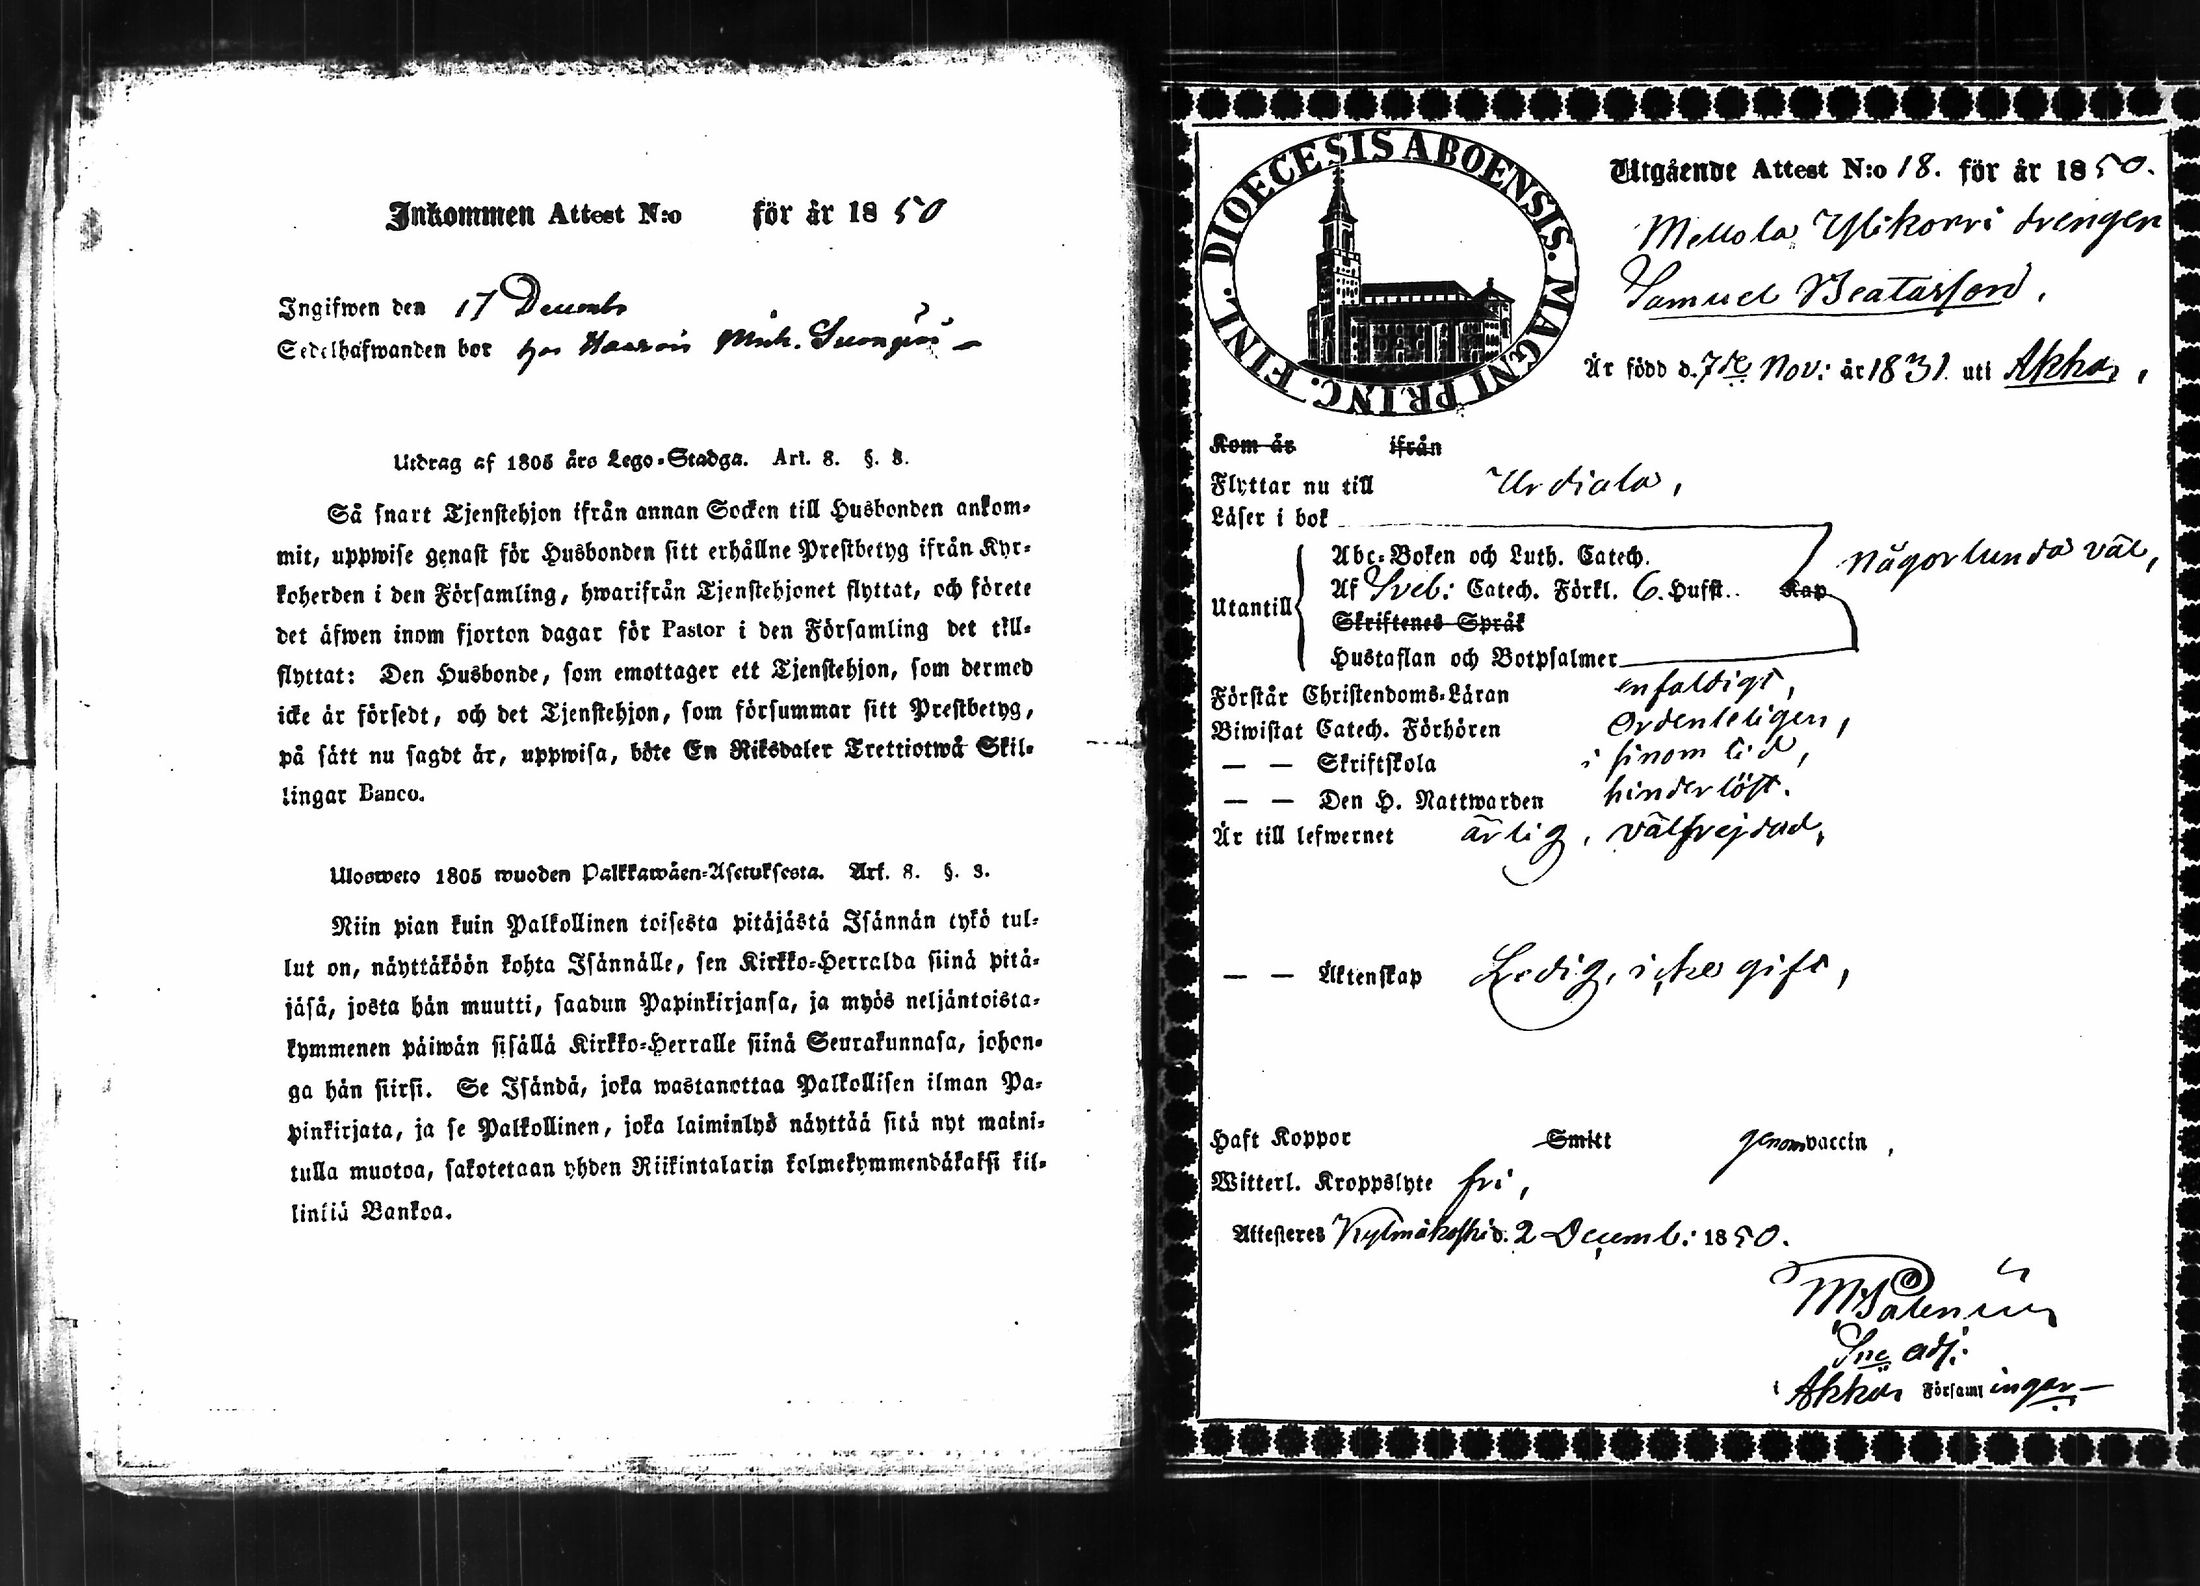 Inkommen Attest N:o för år 1850
Ingifwen den 17 Decemb
Sedelhafwanden bor hos Mich.
Utdrag af 1805 års Lego-Stadga. Art. 8. §. 3.
Så snart Tjenstehjon ifrån annan Socken till Husbonden ankom-
mit, uppwise genast för Husbonden sitt erhållne Prestbetyg ifrån Kyr-
koherden i den Församling, hwarifrån Tjenstehjonet flyttat, och förete
det äfwen inom fjorton dagar för Pastor i den Församling det till-
flyttat: Den Husbonde, som emottager ett Tjenstehjon, som dermed
icke är försedt, och det Tjenstehjon, som försummar sitt Prestbetyg,
på sätt nu sagdt är, uppwisa, böte En Riksdaler Trettiotwå Skil-
lingar Banco.
Ulosweto 1805 wuoden Palkkawäen-Asetuksesta. Art. 8. §. 3.
Niin pian kuin Palkollinen toisesta pitäjästä Isännän tykö tul-
lut on, näyttäköön kohta Isännälle, sen Kirkko-Herralda siinä pitä-
jäsä, josta hän muutti, saadun Papinkirjansa, ja myös neljäntoista-
kymmenen päiwän sisällä Kirkko-Herralle siinä Seurakunnasa, johon-
ga hän siirsi. Se Isändä, joka wastanottaa Palkollisen ilman Pa-
pinkirjata, ja se Palkollinen, joka laiminlyö näyttää sitä nyt maini-
tulla muotoa, sakotetaan yhden Riikintalarin kolmekymmendäkaksi kil-
linkiä Bankoa.
DIOECESIS ABOENSIS. MAGNI PRINC. FINL.
Utgående Attest N:o 18. för år 1850.
Mellola Ylikorri drengen
Samuel Beatasson,
Är född d. 7de Nov: år 1831. uti Akkas,
Kom år ifrån
Flyttar nu till Urdiala,
Läser i bok
Någorlunda väl,
Abc-Boken och Luth. Catech.
Utantill Af Sveb: Catech. Förkl. 6. Hufst.. Kap
Skriftenes Språk
Hustaflan och Botpsalmer
Förstår Christendoms-Läran enfaldigt,
Biwistat Catech. Förhören ordenteligen,
— — Skriftskola i sinom tid,
— — Den H. Nattwarden hinderlöst.
Är till lefwernet ärlig, välfrejdad,
— — Äktenskap Ledig, icke gift,
Haft Koppor Smitt genom vaccin,
Witterl. Kroppslyte fri,
Attesteres Kylmäkoski d. 2 Decemb: 1850.
Sac adj:
i Akkas Församlingar